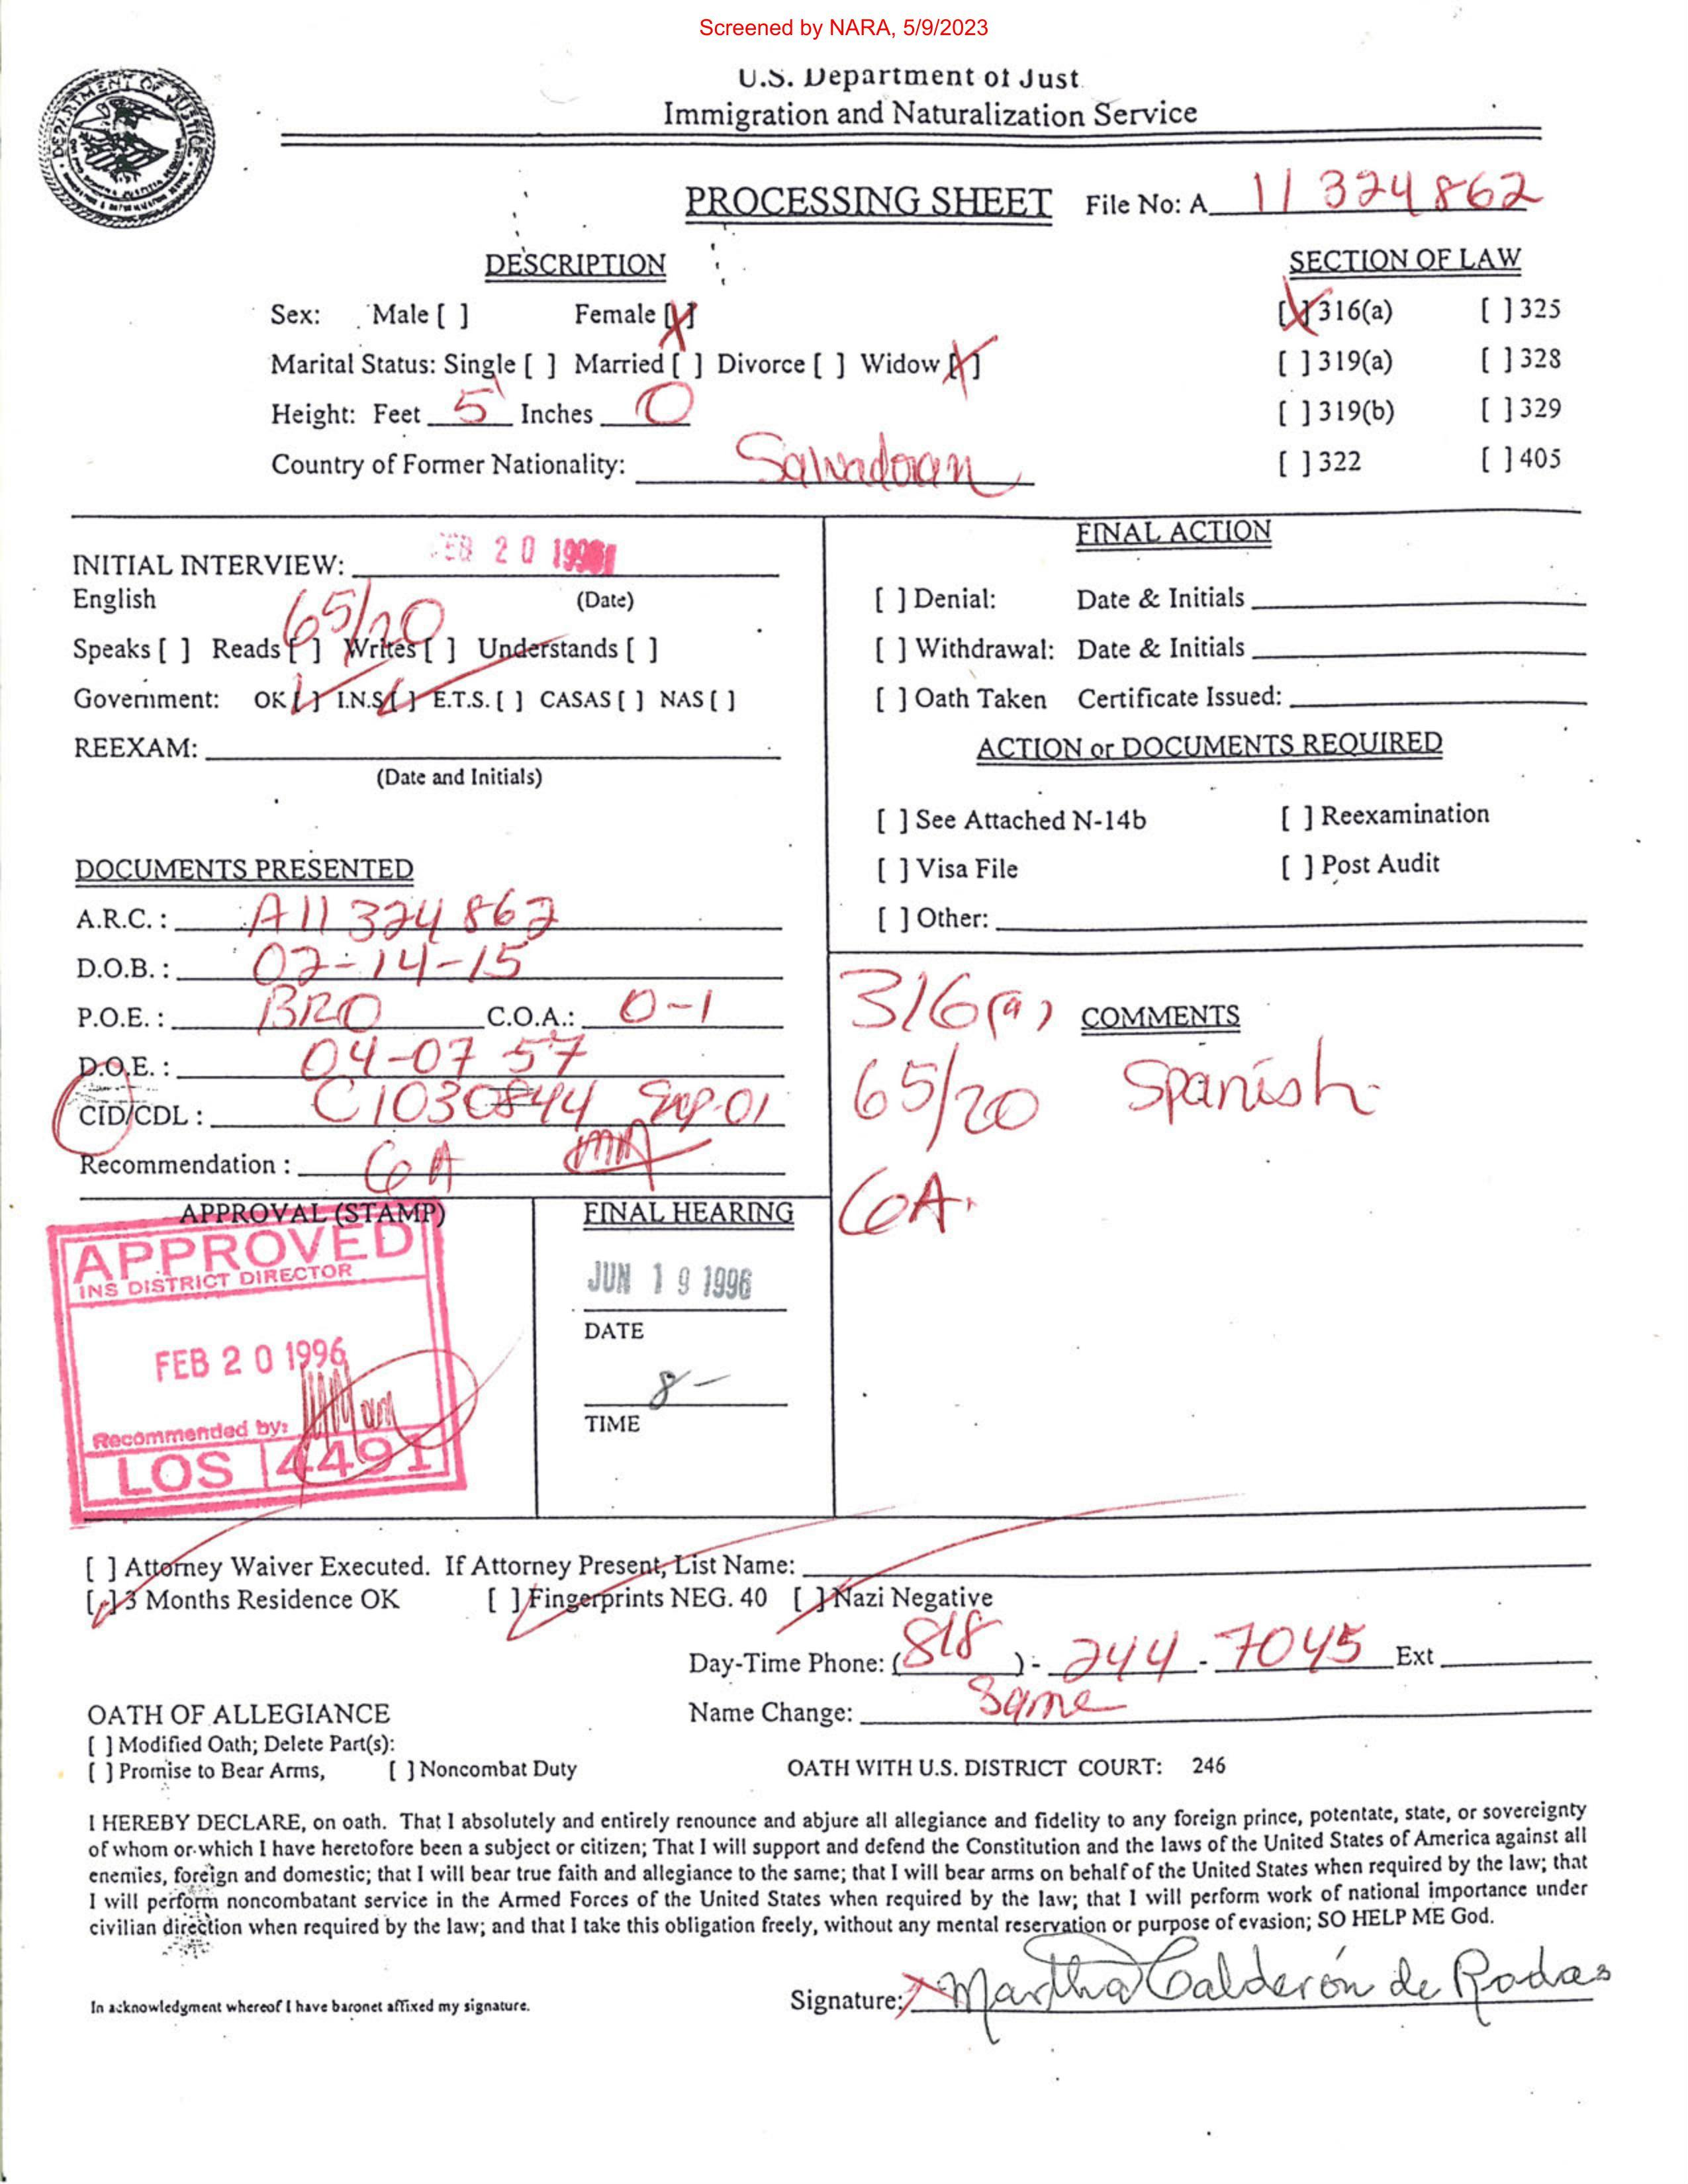 Screened by NARA, 5/9/2023
U.S. Department of Just
Immigration and Naturalization Service
PROCESSING SHEET File No: A 11 324 862
DESCRIPTION
SECTION OF LAW
Sex: Male [ ] Female [X]
[X] 316(a) [ ] 325
Marital Status: Single [ ] Married [ ] Divorce [ ] Widow [X]
[ ] 319(a) [ ] 328
Height: Feet 5 Inches 0
[ ] 319(b) [ ] 329
Country of Former Nationality: Salvadoran
[ ] 322 [ ] 405
INITIAL INTERVIEW: FEB 20 1996
English (Date)
65/20
Speaks [ ] Reads [ ] Writes [ ] Understands [ ]
Government: OK [✓] I.N.S. [✓] E.T.S. [ ] CASAS [ ] NAS [ ]
REEXAM:
(Date and Initials)
DOCUMENTS PRESENTED
A.R.C. : A11 324 862
D.O.B. : 02-14-15
P.O.E. : BRO C.O.A.: O-1
D.O.E. : 04-07 57
CID/CDL : C1030844 Exp-01
Recommendation : GA
FINAL ACTION
[ ] Denial: Date & Initials
[ ] Withdrawal: Date & Initials
[ ] Oath Taken Certificate Issued:
ACTION or DOCUMENTS REQUIRED
[ ] See Attached N-14b [ ] Reexamination
[ ] Visa File [ ] Post Audit
[ ] Other:
316(a) COMMENTS
65/20 Spanish
GA.
APPROVAL (STAMP)
APPROVED
INS DISTRICT DIRECTOR
FEB 20 1996
Recommended by:
LOS 4491
FINAL HEARING
JUN 19 1996
DATE
8-
TIME
[ ] Attorney Waiver Executed. If Attorney Present, List Name:
[✓] 3 Months Residence OK [✓] Fingerprints NEG. 40 [✓] Nazi Negative
Day-Time Phone: (818) - 244 - 7045 Ext
Name Change: Same
OATH OF ALLEGIANCE
[ ] Modified Oath; Delete Part(s):
[ ] Promise to Bear Arms, [ ] Noncombat Duty
OATH WITH U.S. DISTRICT COURT: 246
I HEREBY DECLARE, on oath. That I absolutely and entirely renounce and abjure all allegiance and fidelity to any foreign prince, potentate, state, or sovereignty
of whom or which I have heretofore been a subject or citizen; That I will support and defend the Constitution and the laws of the United States of America against all
enemies, foreign and domestic; that I will bear true faith and allegiance to the same; that I will bear arms on behalf of the United States when required by the law; that
I will perform noncombatant service in the Armed Forces of the United States when required by the law; that I will perform work of national importance under
civilian direction when required by the law; and that I take this obligation freely, without any mental reservation or purpose of evasion; SO HELP ME God.
In acknowledgment whereof I have baronet affixed my signature.
Signature: X Martha Calderón de Rodas